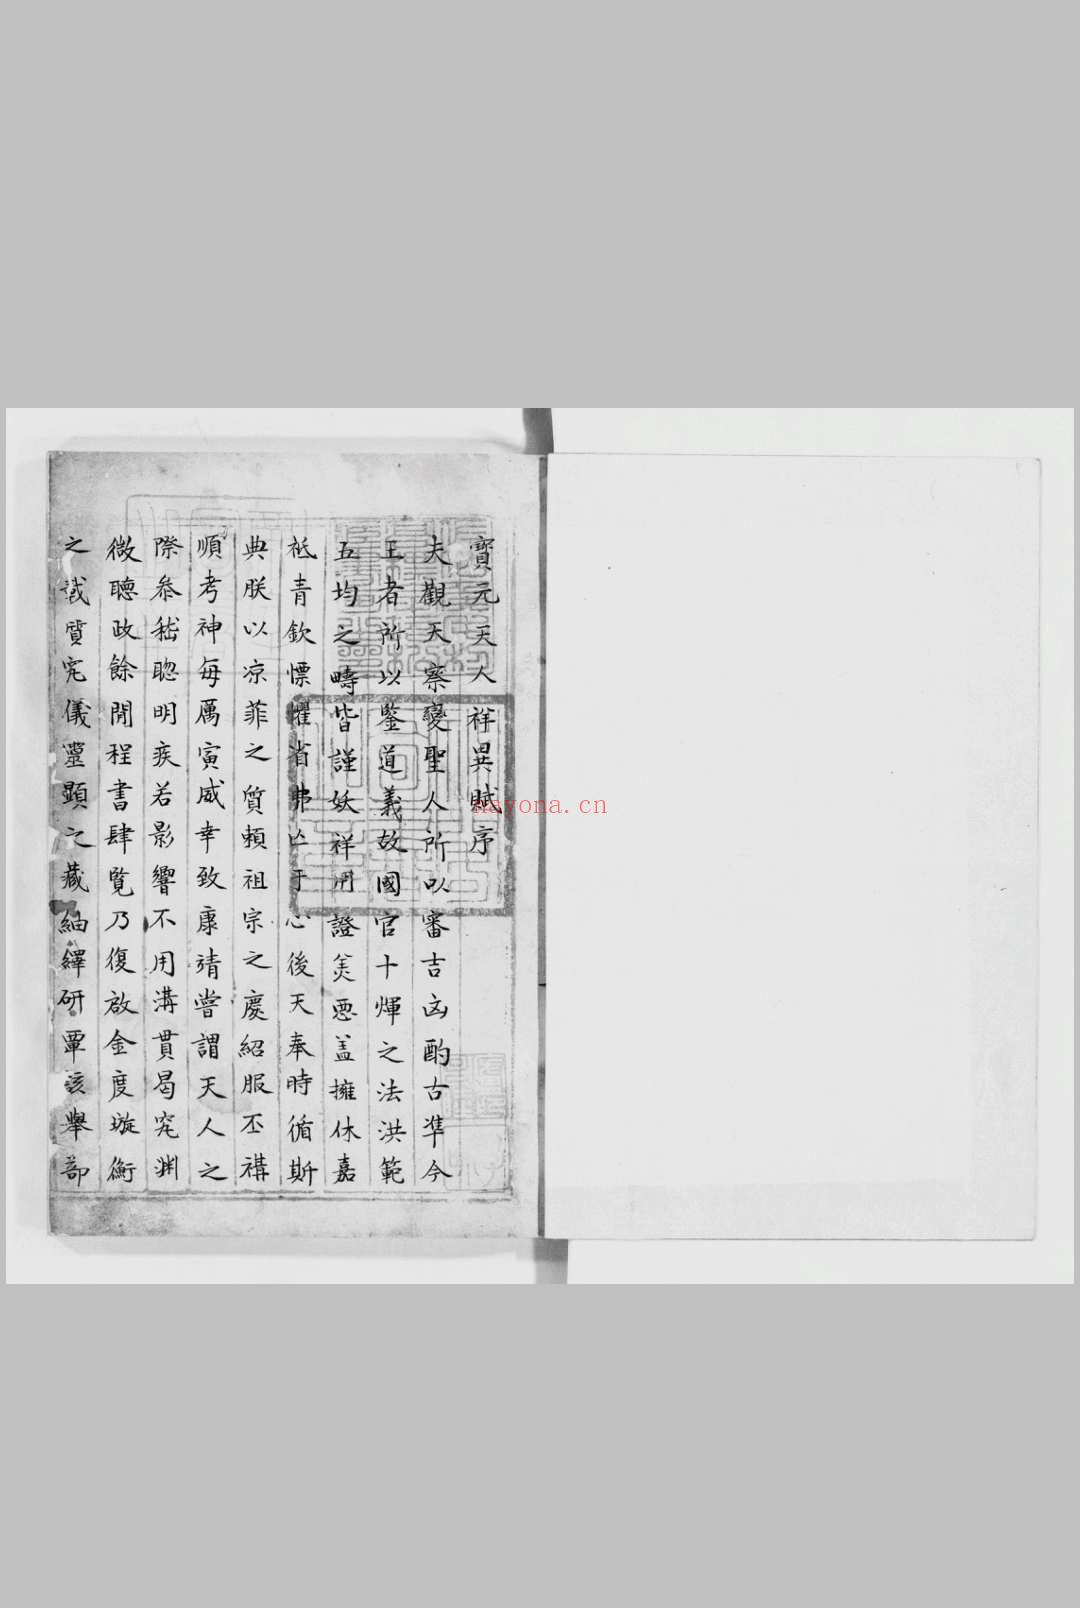 寶元天人祥異賦序
夫觀天察變聖人所以審吉凶酌古準今
王者所以鑒道義故國官十煇之法洪範
五均之疇皆謹妖祥用證美惡蓋擁休嘉
祗青欽慄懼省弗亡于心後天奉時循斯
典朕以涼菲之質賴祖宗之慶紹服丕構
順考神每厲寅威幸致康靖嘗謂天人之
際叅嵇聰明疾若影響不用溝貫曷究淵
微聽政餘閒程書肆覽乃復啟金度璇衡
之載質究儀靈顯之藏紬繹研覃該舉部
nayona.cn